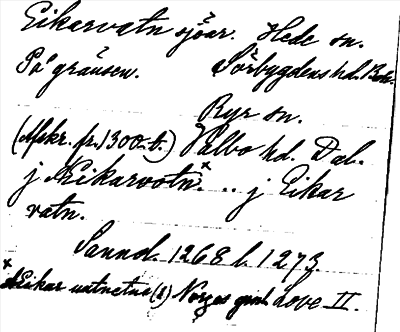 Eikarvatn sjöar. Hede sn.
På gränsen. Sörbygdens hd. Boh.
Ryr sn.
(Afskr. fr. 1300-t.) Valbo hd. Dal.
j Neikarvotn.ˣ .. j Eikar
vatn.
Sannol. 1268 l. 1273.
ˣ Neikar vatnetna(s) Norges gml. love II.